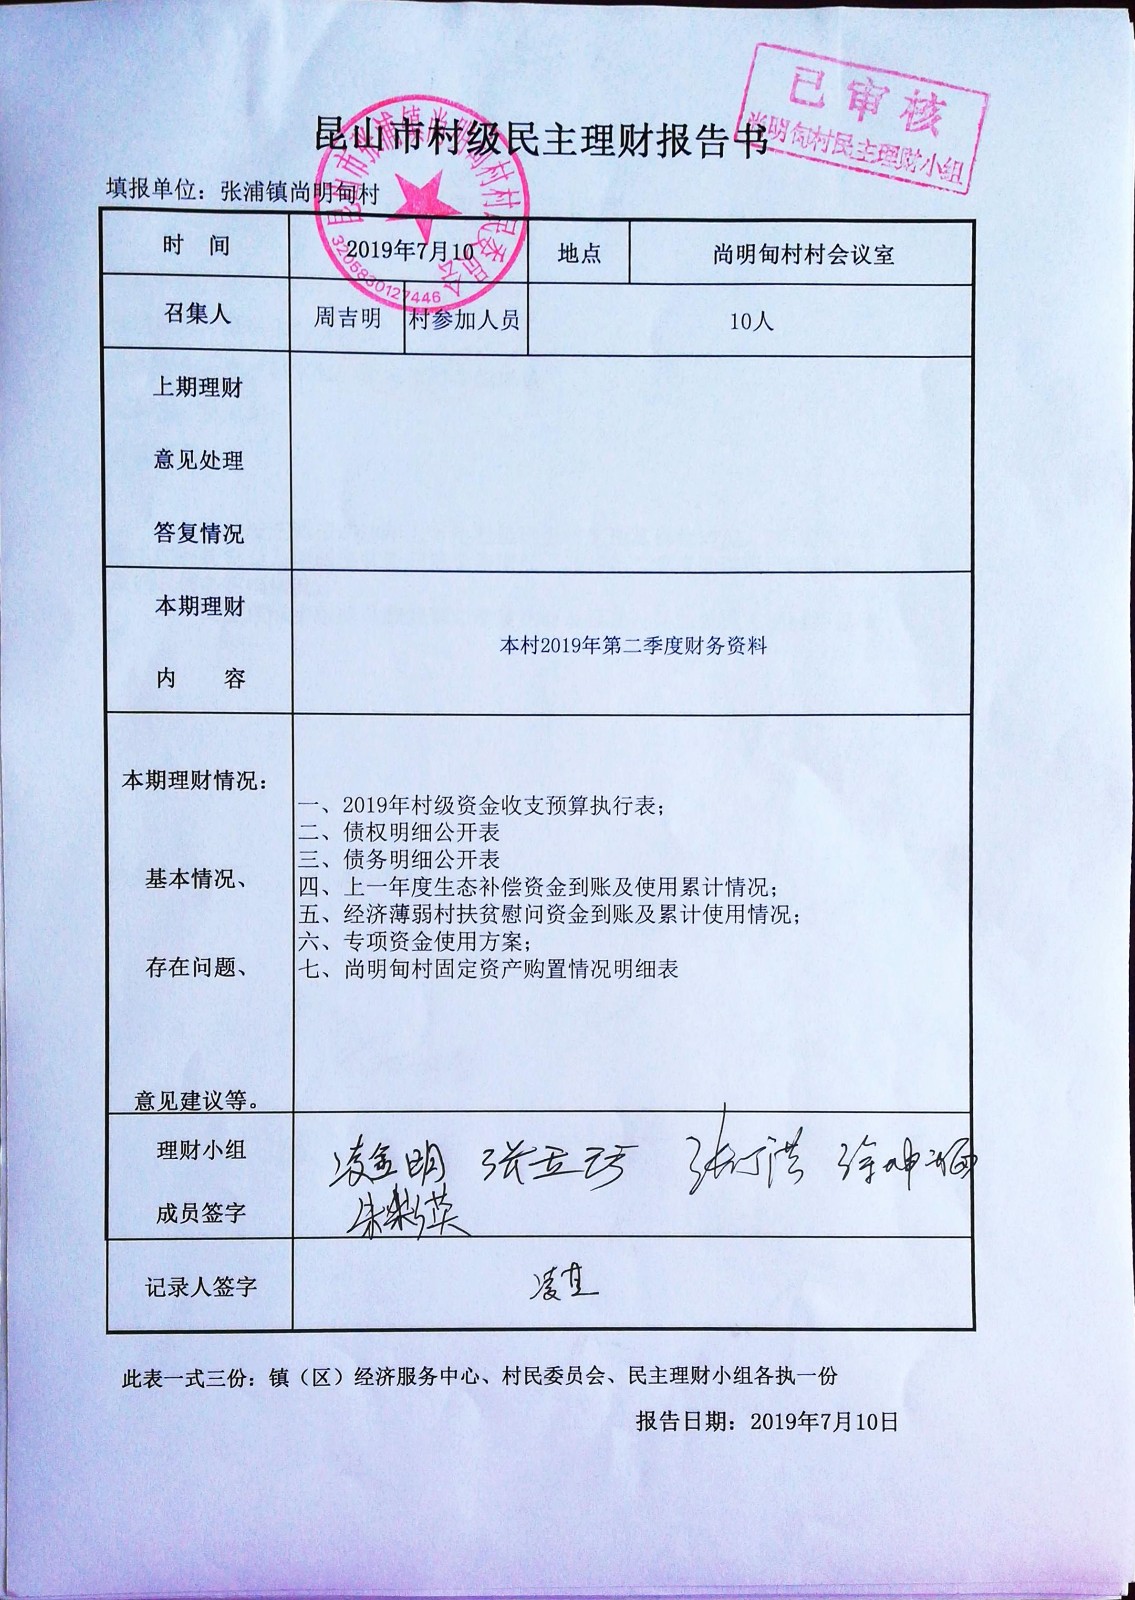 已审核
尚明甸村民主理财小组
昆山市村级民主理财报告书
昆山市张浦镇尚明甸村村民委员会
3205830127446
填报单位：张浦镇尚明甸村
时 间 2019年7月10 地点 尚明甸村村会议室
召集人 周吉明 村参加人员 10人
上期理财
意见处理
答复情况
本期理财
内 容
本村2019年第二季度财务资料
本期理财情况：
基本情况、
存在问题、
意见建议等。
一、2019年村级资金收支预算执行表；
二、债权明细公开表
三、债务明细公开表
四、上一年度生态补偿资金到账及使用累计情况；
五、经济薄弱村扶贫慰问资金到账及累计使用情况；
六、专项资金使用方案；
七、尚明甸村固定资产购置情况明细表
理财小组
成员签字
凌金明
记录人签字
此表一式三份：镇（区）经济服务中心、村民委员会、民主理财小组各执一份
报告日期：2019年7月10日